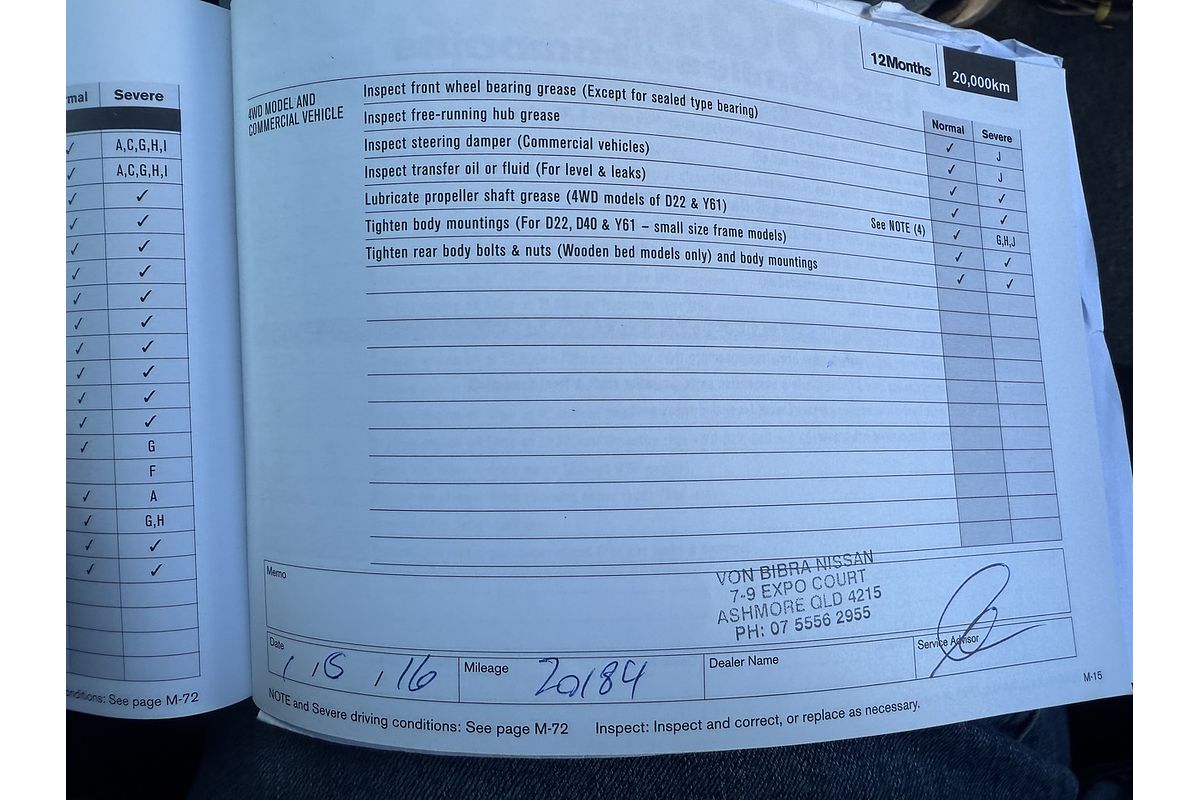 mal Severe
✓ A,C,G,H,I
✓ A,C,G,H,I
✓ ✓
✓ ✓
✓ ✓
✓ ✓
✓ ✓
✓ ✓
✓ ✓
✓ ✓
✓ ✓
✓ ✓
✓ G
F
✓ A
✓ G,H
✓ ✓
✓ ✓
onditions: See page M-72
12Months 20,000km
Normal Severe
4WD MODEL AND
COMMERCIAL VEHICLE
Inspect front wheel bearing grease (Except for sealed type bearing) ✓ J
Inspect free-running hub grease ✓ J
Inspect steering damper (Commercial vehicles) ✓ ✓
Inspect transfer oil or fluid (For level & leaks) ✓ ✓
Lubricate propeller shaft grease (4WD models of D22 & Y61) See NOTE (4) ✓ G,H,J
Tighten body mountings (For D22, D40 & Y61 – small size frame models) ✓ ✓
Tighten rear body bolts & nuts (Wooden bed models only) and body mountings ✓ ✓
Memo
VON BIBRA NISSAN
7-9 EXPO COURT
ASHMORE QLD 4215
PH: 07 5556 2955
Date / 16 Mileage 20184 Dealer Name Service Advisor
NOTE and Severe driving conditions: See page M-72 Inspect: Inspect and correct, or replace as necessary.
M-15